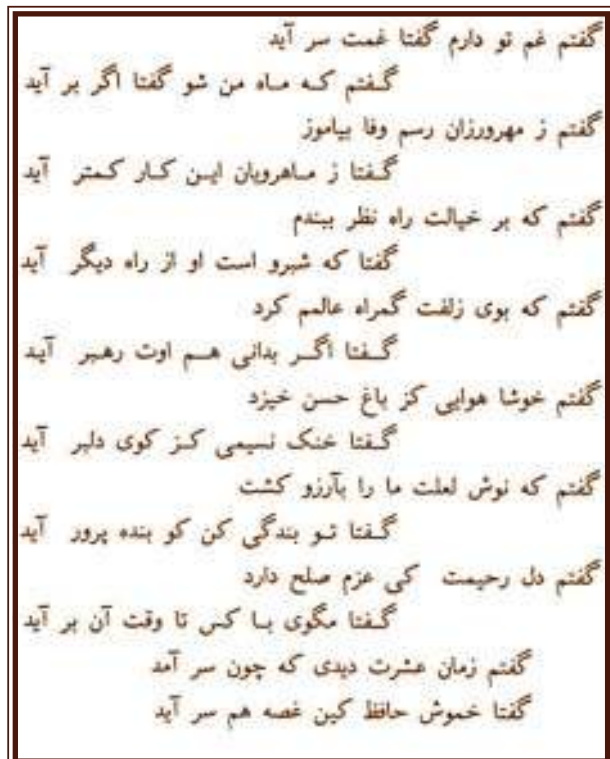 گفتم غم تو دارم گفتا غمت سر آید
گفتم که ماه من شو گفتا اگر بر آید
گفتم ز مهرورزان رسم وفا بیاموز
گفتا ز ماهرویان این کار کمتر آید
گفتم که بر خیالت راه نظر ببندم
گفتا که شبرو است او از راه دیگر آید
گفتم که بوی زلفت گمراه عالمم کرد
گفتا اگر بدانی هم اوت رهبر آید
گفتم خوشا هوایی کز باغ حسن خیزد
گفتا خنک نسیمی کز کوی دلبر آید
گفتم که نوش لعلت ما را بآرزو کشت
گفتا تو بندگی کن کو بنده پرور آید
گفتم دل رحیمت کی عزم صلح دارد
گفتا مگوی با کس تا وقت آن بر آید
گفتم زمان عشرت دیدی که چون سر آمد
گفتا خموش حافظ کین غصه هم سر آید